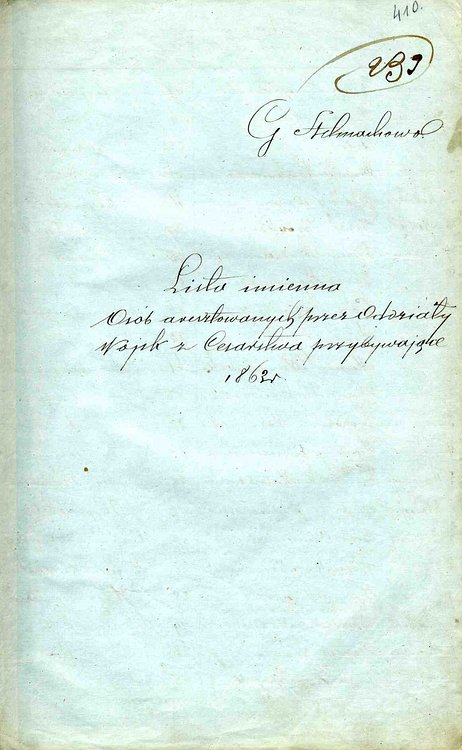 410.
239
G Stelmachowo
Lista imienna
Osób aresztowanych przez Oddziały
Wojsk z Cesarstwa przybywające
1863r.